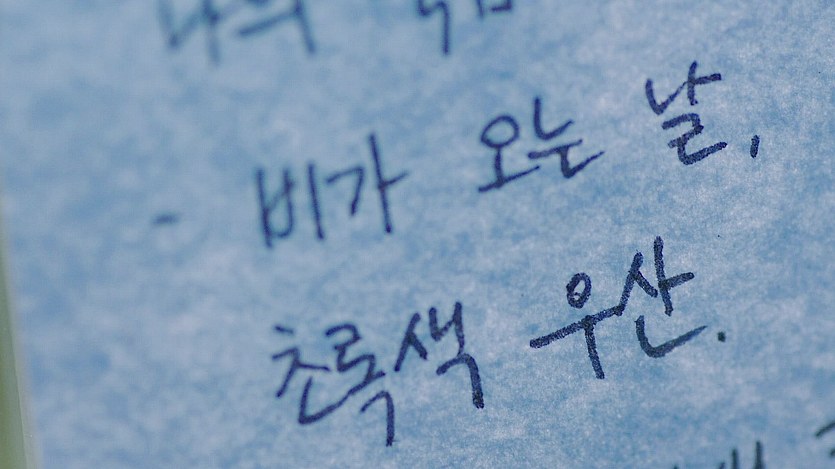 나의
- 비가 오는 날,
초록색 우산.